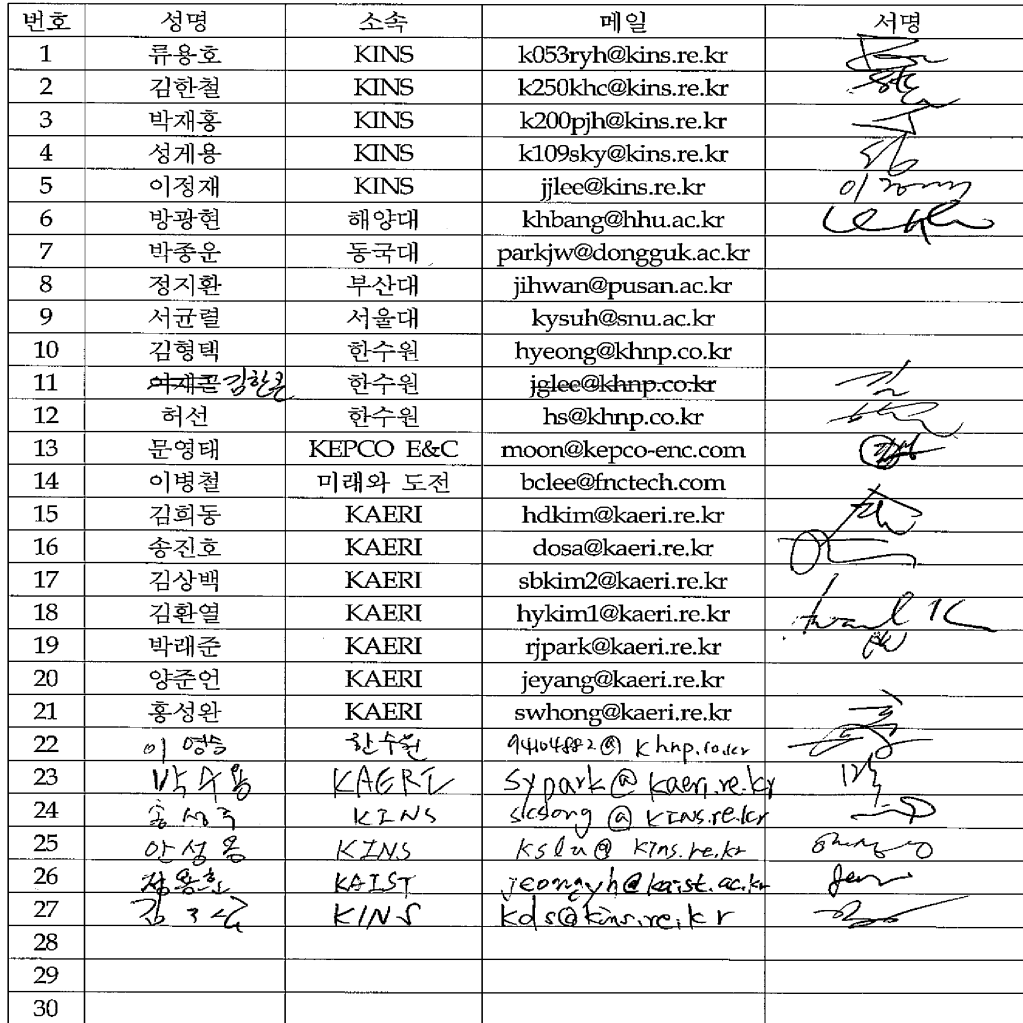 번호 성명 소속 메일 서명
1 류용호 KINS k053ryh@kins.re.kr
2 김한철 KINS k250khc@kins.re.kr
3 박재홍 KINS k200pjh@kins.re.kr
4 성게용 KINS k109sky@kins.re.kr
5 이정재 KINS jjlee@kins.re.kr
6 방광현 해양대 khbang@hhu.ac.kr
7 박종운 동국대 parkjw@dongguk.ac.kr
8 정지환 부산대 jihwan@pusan.ac.kr
9 서균렬 서울대 kysuh@snu.ac.kr
10 김형택 한수원 hyeong@khnp.co.kr
11 한수원 jglee@khnp.co.kr
12 허선 한수원 hs@khnp.co.kr
13 문영태 KEPCO E&C moon@kepco-enc.com
14 이병철 미래와 도전 bclee@fnctech.com
15 김희동 KAERI hdkim@kaeri.re.kr
16 송진호 KAERI dosa@kaeri.re.kr
17 김상백 KAERI sbkim2@kaeri.re.kr
18 김환열 KAERI hykim1@kaeri.re.kr
19 박래준 KAERI rjpark@kaeri.re.kr
20 양준언 KAERI jeyang@kaeri.re.kr
21 홍성완 KAERI swhong@kaeri.re.kr
22 한수원
23 박수용 KAERI sypark@kaeri.re.kr
24 KINS
25 KINS kslu@kins.re.kr
26 정용훈 KAIST jeongyh@kaist.ac.kr
27 KINS kds@kins.re.kr
28
29
30